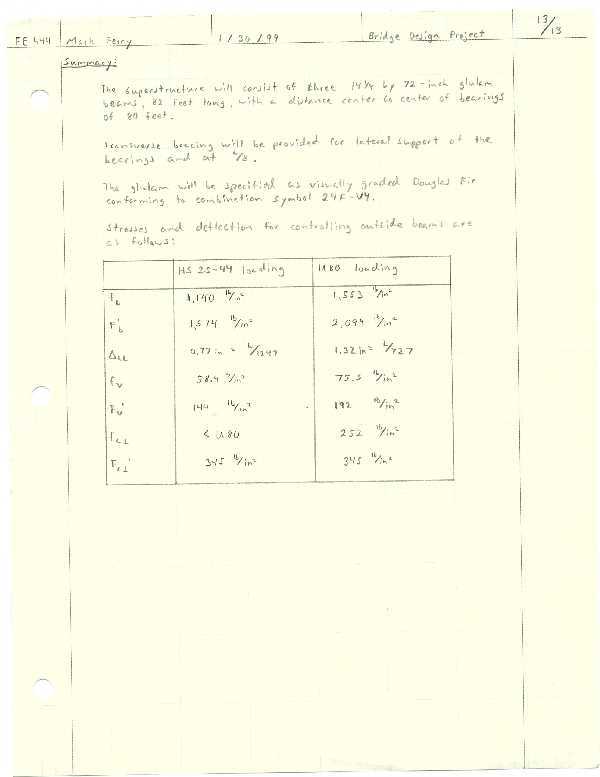 FE 444 Mark Ferry 1/30/99 Bridge Design Project 13/13
Summary:
The superstructure will consist of three 14 1/4 by 72-inch glulam
beams, 82 feet long, with a distance center to center of bearings
of 80 feet.
Transverse bracing will be provided for lateral support of the
bearings and at L/3.
The glulam will be specified as visually graded Douglas Fir
conforming to combination symbol 24F-V4.
Stresses and deflection for controlling outside beams are
as follows:
HS 25-44 loading U80 loading
fb 1,140 lb/in² 1,553 lb/in²
F'b 1,574 lb/in² 2,094 lb/in²
ΔLL 0.77 in = L/1247 1.32 in = L/727
fv 58.4 lb/in² 75.3 lb/in²
Fv' 144 lb/in² 192 lb/in²
fc⊥ < U80 252 lb/in²
Fc⊥' 345 lb/in² 345 lb/in²